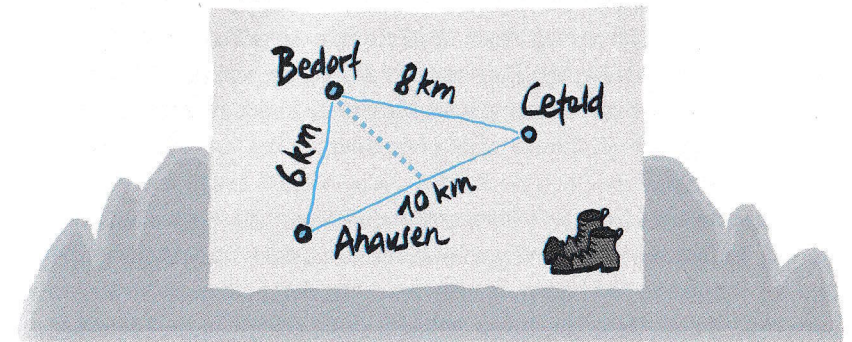 Bedorf
8 km
Cefeld
6 km
10 km
Ahausen